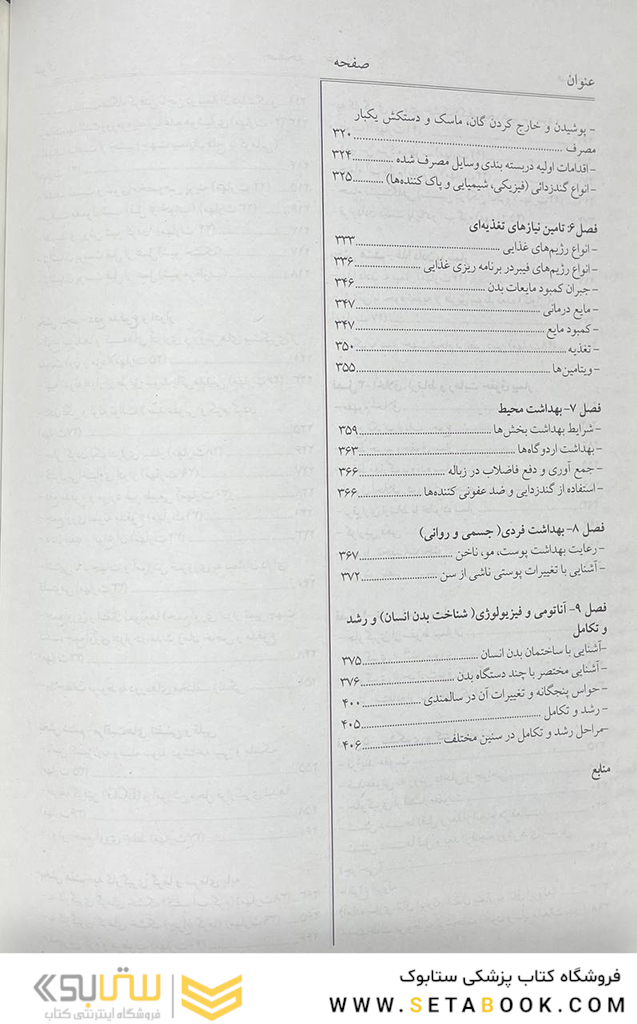 عنوان
صفحه
- پوشیدن و خارج کردن گان، ماسک و دستکش یکبار
مصرف ........ ۳۲۰
- اقدامات اولیه دربسته بندی وسایل مصرف شده ........ ۳۲۴
- انواع گندزدائی (فیزیکی، شیمیایی و پاک کننده‌ها) ........ ۳۲۵
فصل ۶: تامین نیازهای تغذیه‌ای
- انواع رژیم‌های غذایی ........ ۳۳۳
- انواع رژیم‌های فیبردر برنامه ریزی غذایی ........ ۳۳۶
- جبران کمبود مایعات بدن ........ ۳۴۶
- مایع درمانی ........ ۳۴۷
- کمبود مایع ........ ۳۴۷
- تغذیه ........ ۳۵۰
- ویتامین‌ها ........ ۳۵۵
فصل ۷- بهداشت محیط
- شرایط بهداشت بخش‌ها ........ ۳۵۹
- بهداشت اردوگاه‌ها ........ ۳۶۳
- جمع آوری و دفع فاضلاب در زباله ........ ۳۶۶
- استفاده از گندزدایی و ضد عفونی کننده‌ها ........ ۳۶۶
فصل ۸- بهداشت فردی( جسمی و روانی)
- رعایت بهداشت پوست، مو، ناخن ........ ۳۶۷
- آشنایی با تغییرات پوستی ناشی از سن ........ ۳۷۲
فصل ۹- آناتومی و فیزیولوژی( شناخت بدن انسان) و رشد
و تکامل
-آشنایی با ساختمان بدن انسان ........ ۳۷۵
- آشنایی مختصر با چند دستگاه بدن ........ ۳۷۶
- حواس پنجگانه و تغییرات آن در سالمندی ........ ۴۰۰
- رشد و تکامل ........ ۴۰۵
-مراحل رشد و تکامل در سنین مختلف ........ ۴۰۶
منابع
فروشگاه کتاب پزشکی ستابوک
WWW.SETABOOK.COM
ستابوک
فروشگاه اینترنتی کتاب